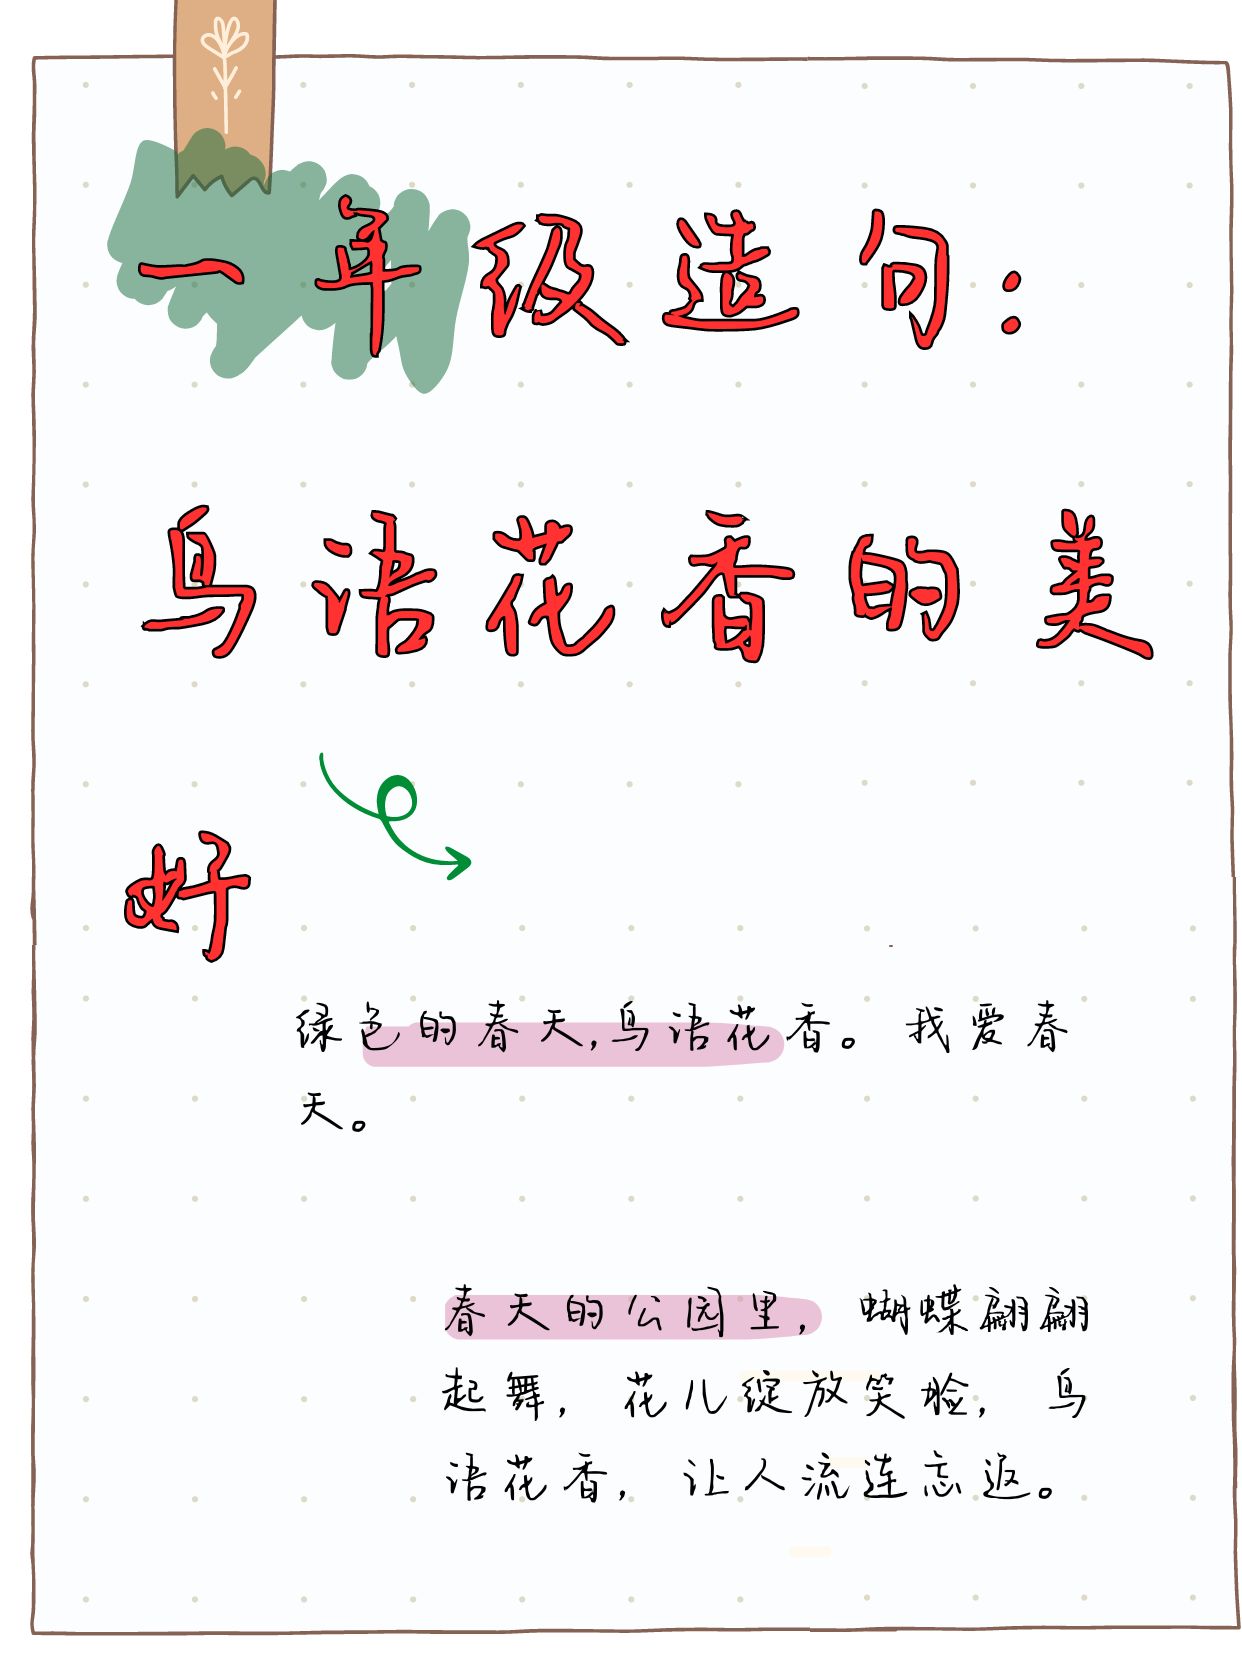 一年级造句：
鸟语花香的美
好
绿色的春天，鸟语花香。我爱春
天。
春天的公园里，蝴蝶翩翩
起舞，花儿绽放笑脸，鸟
语花香，让人流连忘返。